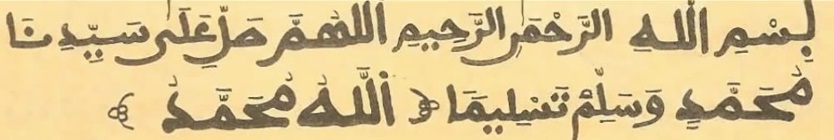 بِسْمِ اللهِ الرَّحْمٰنِ الرَّحِيمِ اَللّٰهُمَّ صَلِّ عَلَى سَيِّدِنَا
مُحَمَّدٍ وَسَلِّمْ تَسْلِيمَا اَللّٰهُ مُحَمَّدْ